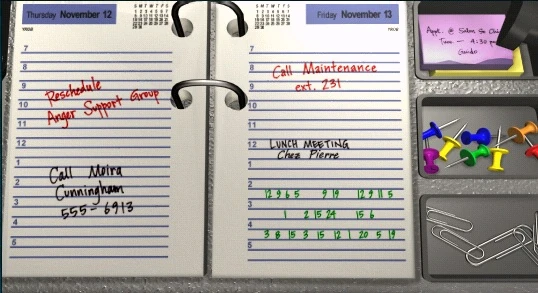 Thursday November 12
S M T W T F S
7
8
9
Reschedule
10
Anger Support Group
11
12
1
Call Moira
2
Cunningham
3
555-6913
4
5
Friday November 13
S M T W T F S
7
8
Call Maintenance
9
ext. 231
10
11
12
LUNCH MEETING
Chez Pierre
1
2
12 9 6 5 9 19 12 9 11 5
3
1 2 15 24 15 6
4
3 8 15 3 15 12 1 20 5 19
5
Appt. @ Salon
Time - 4:30
Guido